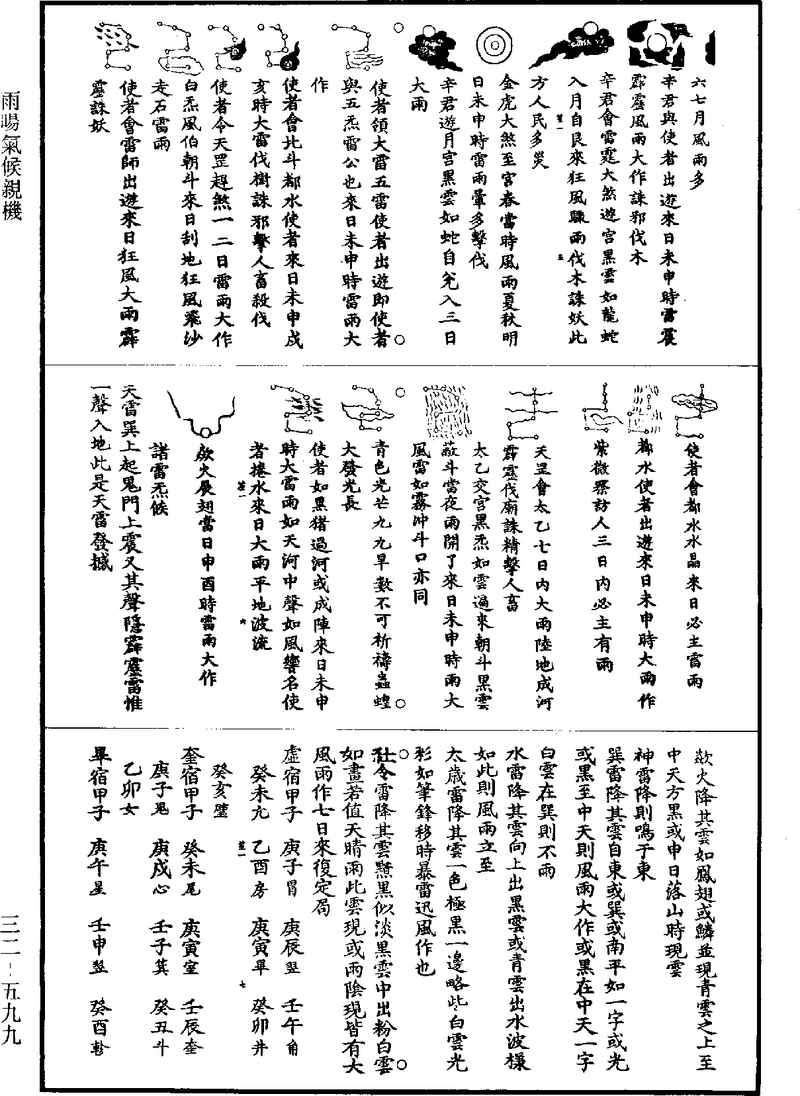 雨暘氣候親機
三二-五九九
六七月風雨多
辛君與使者出遊來日未申時雷震
霹靂風雨大作誅邪伐木
辛君會雷霆大煞遊宮黑雲如龍蛇
入月自艮來狂風驟雨伐木誅妖此
方人民多災
金虎大煞至宮春當時風雨夏秋明
日未申時雷雨暈多擊伐
辛君遊月宮黑雲如蛇自兊入三日
大雨
使者領大雷五雷使者出遊即使者
與五炁雷公也來日未申時雷雨大
作
使者會北斗都水使者來日未申戌
亥時大雷伐樹誅邪擊人畜殺伐
使者令天罡趕煞一二日雷雨大作
白炁風伯朝斗來日刮地狂風飛沙
走石雷雨
使者會雷師出遊來日狂風大雨霹
靂誅妖
使者會都水水晶來日必主雷雨
都水使者出遊來日未申時大雨作
紫微察訪人三日內必主有雨
天罡會太乙七日內大雨陸地成河
霹靂伐廟誅精擊人畜
太乙交宮黑炁如雲遍來朝斗黑雲
蔽斗當夜雨開了來日未申時雨大
風雷如霧沖斗口亦同
青色光芒九九旱數不可祈禱蟲蝗
大發光長
使者如黑猪過河或成陣來日未申
時大雷雨如天河中聲如風響名使
者捲水來日大雨平地波流
欻火展翅當日申酉時雷雨大作
諸雷炁候
天雷巽上起鬼門上震又其聲隱霹靂雷惟
一聲入地此是天雷發撼
欻火降其雲如鳳翅或鱗並現青雲之上至
中天方黑或申日落山時現雲
神雷降則鳴于東
巽雷降其雲自東或巽或南平如一字或光
或黑至中天則風雨大作或黑在中天一字
白雲在巽則不雨
水雷降其雲向上出黑雲或青雲出水波樣
如此則風雨立至
太歲雷降其雲一色極黑一邊略些白雲光
彩如筆鋒移時暴雷迅風作也
社令雷降其雲黶黑似淡黑雲中出粉白雲
如畫若值天晴雨此雲現或雨陰現皆有大
風雨作七日來復定局
虛宿甲子 庚子胃 庚辰翌 壬午角
癸未亢 乙酉房 庚寅畢 癸卯井
癸亥壁
奎宿甲子 癸未尾 庚寅室 壬辰奎
庚子鬼 庚戌心 壬子箕 癸丑斗
乙卯女
畢宿甲子 庚午星 壬申翌 癸酉軫